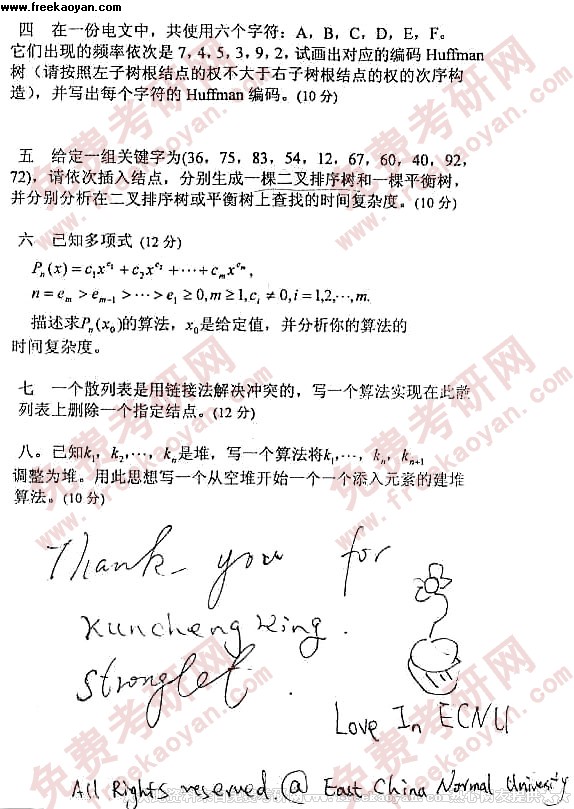 www.freekaoyan.com
四 在一份电文中，共使用六个字符：A，B，C，D，E，F。
它们出现的频率依次是7，4，5，3，9，2，试画出对应的编码Huffman
树（请按照左子树根结点的权不大于右子树根结点的权的次序构
造），并写出每个字符的Huffman编码。(10分)
五 给定一组关键字为(36，75，83，54，12，67，60，40，92，
72)，请依次插入结点，分别生成一棵二叉排序树和一棵平衡树，
并分别分析在二叉排序树或平衡树上查找的时间复杂度。(10分)
六 已知多项式 (12分)
Pₙ(x)=c₁x^{e₁}+c₂x^{e₂}+⋯+cₘx^{eₘ},
n=eₘ>eₘ₋₁>⋯>e₁≥0,m≥1,cᵢ≠0,i=1,2,⋯,m.
描述求Pₙ(x₀)的算法，x₀是给定值，并分析你的算法的
时间复杂度。
七 一个散列表是用链接法解决冲突的，写一个算法实现在此散
列表上删除一个指定结点。(12分)
八。已知k₁，k₂，⋯，kₙ是堆，写一个算法将k₁,⋯，kₙ，kₙ₊₁
调整为堆。用此思想写一个从空堆开始一个一个添入元素的建堆
算法。(10分)
Thank you for
Kuncheng King.
stronglet.
Love In ECNU
All Rights reserved.@ East China Normal University
免费考研网
freekaoyan.com